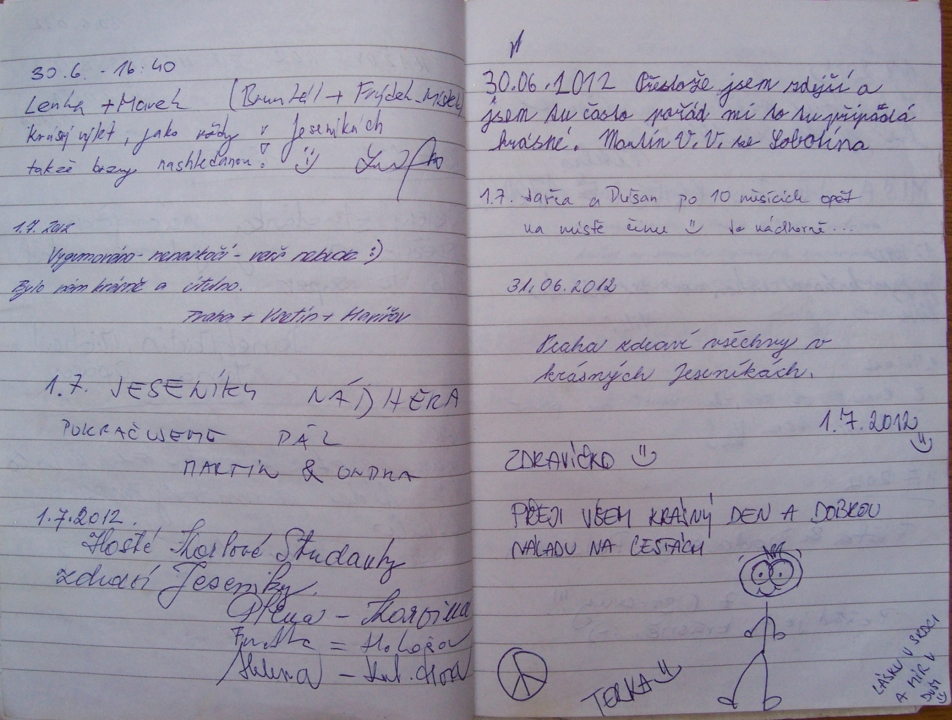 30.6. - 16:40
Lenka + Marek (Bruntál + Frýdek-Místek)
krásný výlet, jako vždy v Jeseníkách
takže brzy nashledanou!
1.7. 2012
Vygumováno - nenaskočí - verš nebude :)
Bylo nám krásně a útulno.
Praha + Vsetín + Havířov
1.7. JESENÍKY NÁDHERA
POKRAČUJEME DÁL
MARTIN & ONDRA
1.7.2012.
Hosté Karlové Studánky
zdraví Jeseníky.
– Karviná
=
Helena –
30.06.1012 Přestože jsem zdejší a
jsem tu často pořád mi to tu připadá
krásné. Martin V. V. ze Sobotína
1.7. Jarča a Dušan po 10 měsících opět
na místě činu je nádherně...
31.06.2012
Praha zdraví všechny v
krásných Jeseníkách.
1.7.2012
ZDRAVÍČKO
PŘEJI VŠEM KRÁSNÝ DEN A DOBROU
NÁLADU NA CESTÁCH
TERKA
LÁSKU V SRDCI
A MÍR V
DUŠI